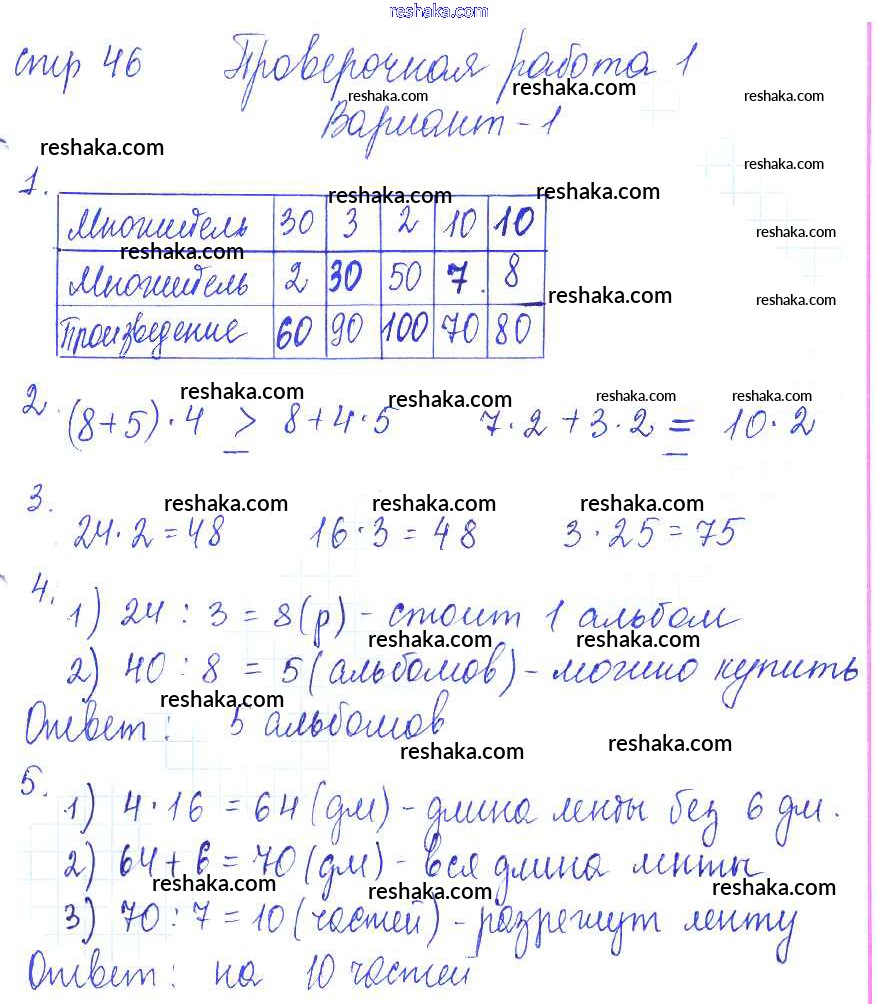 reshaka.com
стр 46 Проверочная работа 1
reshaka.com reshaka.com reshaka.com
Вариант - 1
reshaka.com
reshaka.com
1.
reshaka.com reshaka.com
Множитель 30 3 2 10 10
reshaka.com reshaka.com
Множитель 2 30 50 7 8
reshaka.com reshaka.com
Произведение 60 90 100 70 80
reshaka.com reshaka.com reshaka.com reshaka.com
2. (8+5)·4 > 8+4·5 7·2+3·2 = 10·2
3.
reshaka.com reshaka.com reshaka.com
24·2=48 16·3=48 3·25=75
4. 1) 24 : 3 = 8 (р) - стоит 1 альбом
reshaka.com reshaka.com
2) 40 : 8 = 5 (альбомов) - можно купить
reshaka.com
Ответ: 5 альбомов
reshaka.com reshaka.com
5. 1) 4·16 = 64 (дм) - длина ленты без 6 дм.
2) 64+6=70 (дм) - вся длина ленты
reshaka.com reshaka.com reshaka.com
3) 70 : 7 = 10 (частей) - разрежут ленту
Ответ: на 10 частей